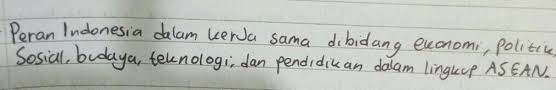 Peran Indonesia dalam kerja sama dibidang ekonomi, politik,
Sosial, budaya, teknologi, dan pendidikan dalam lingkup ASEAN.